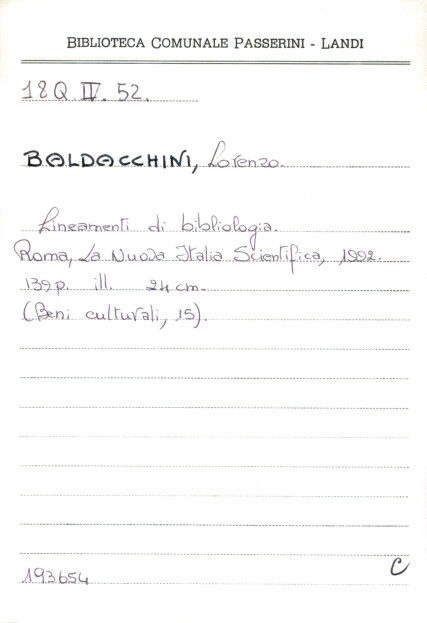 BIBLIOTECA COMUNALE PASSERINI - LANDI
18Q IV. 52.
BALDACCHINI, Lorenzo.
Lineamenti di bibliologia.
Roma, La Nuova Italia Scientifica, 1992.
139 p. ill. 24 cm.
(Beni culturali, 15).
193654
C